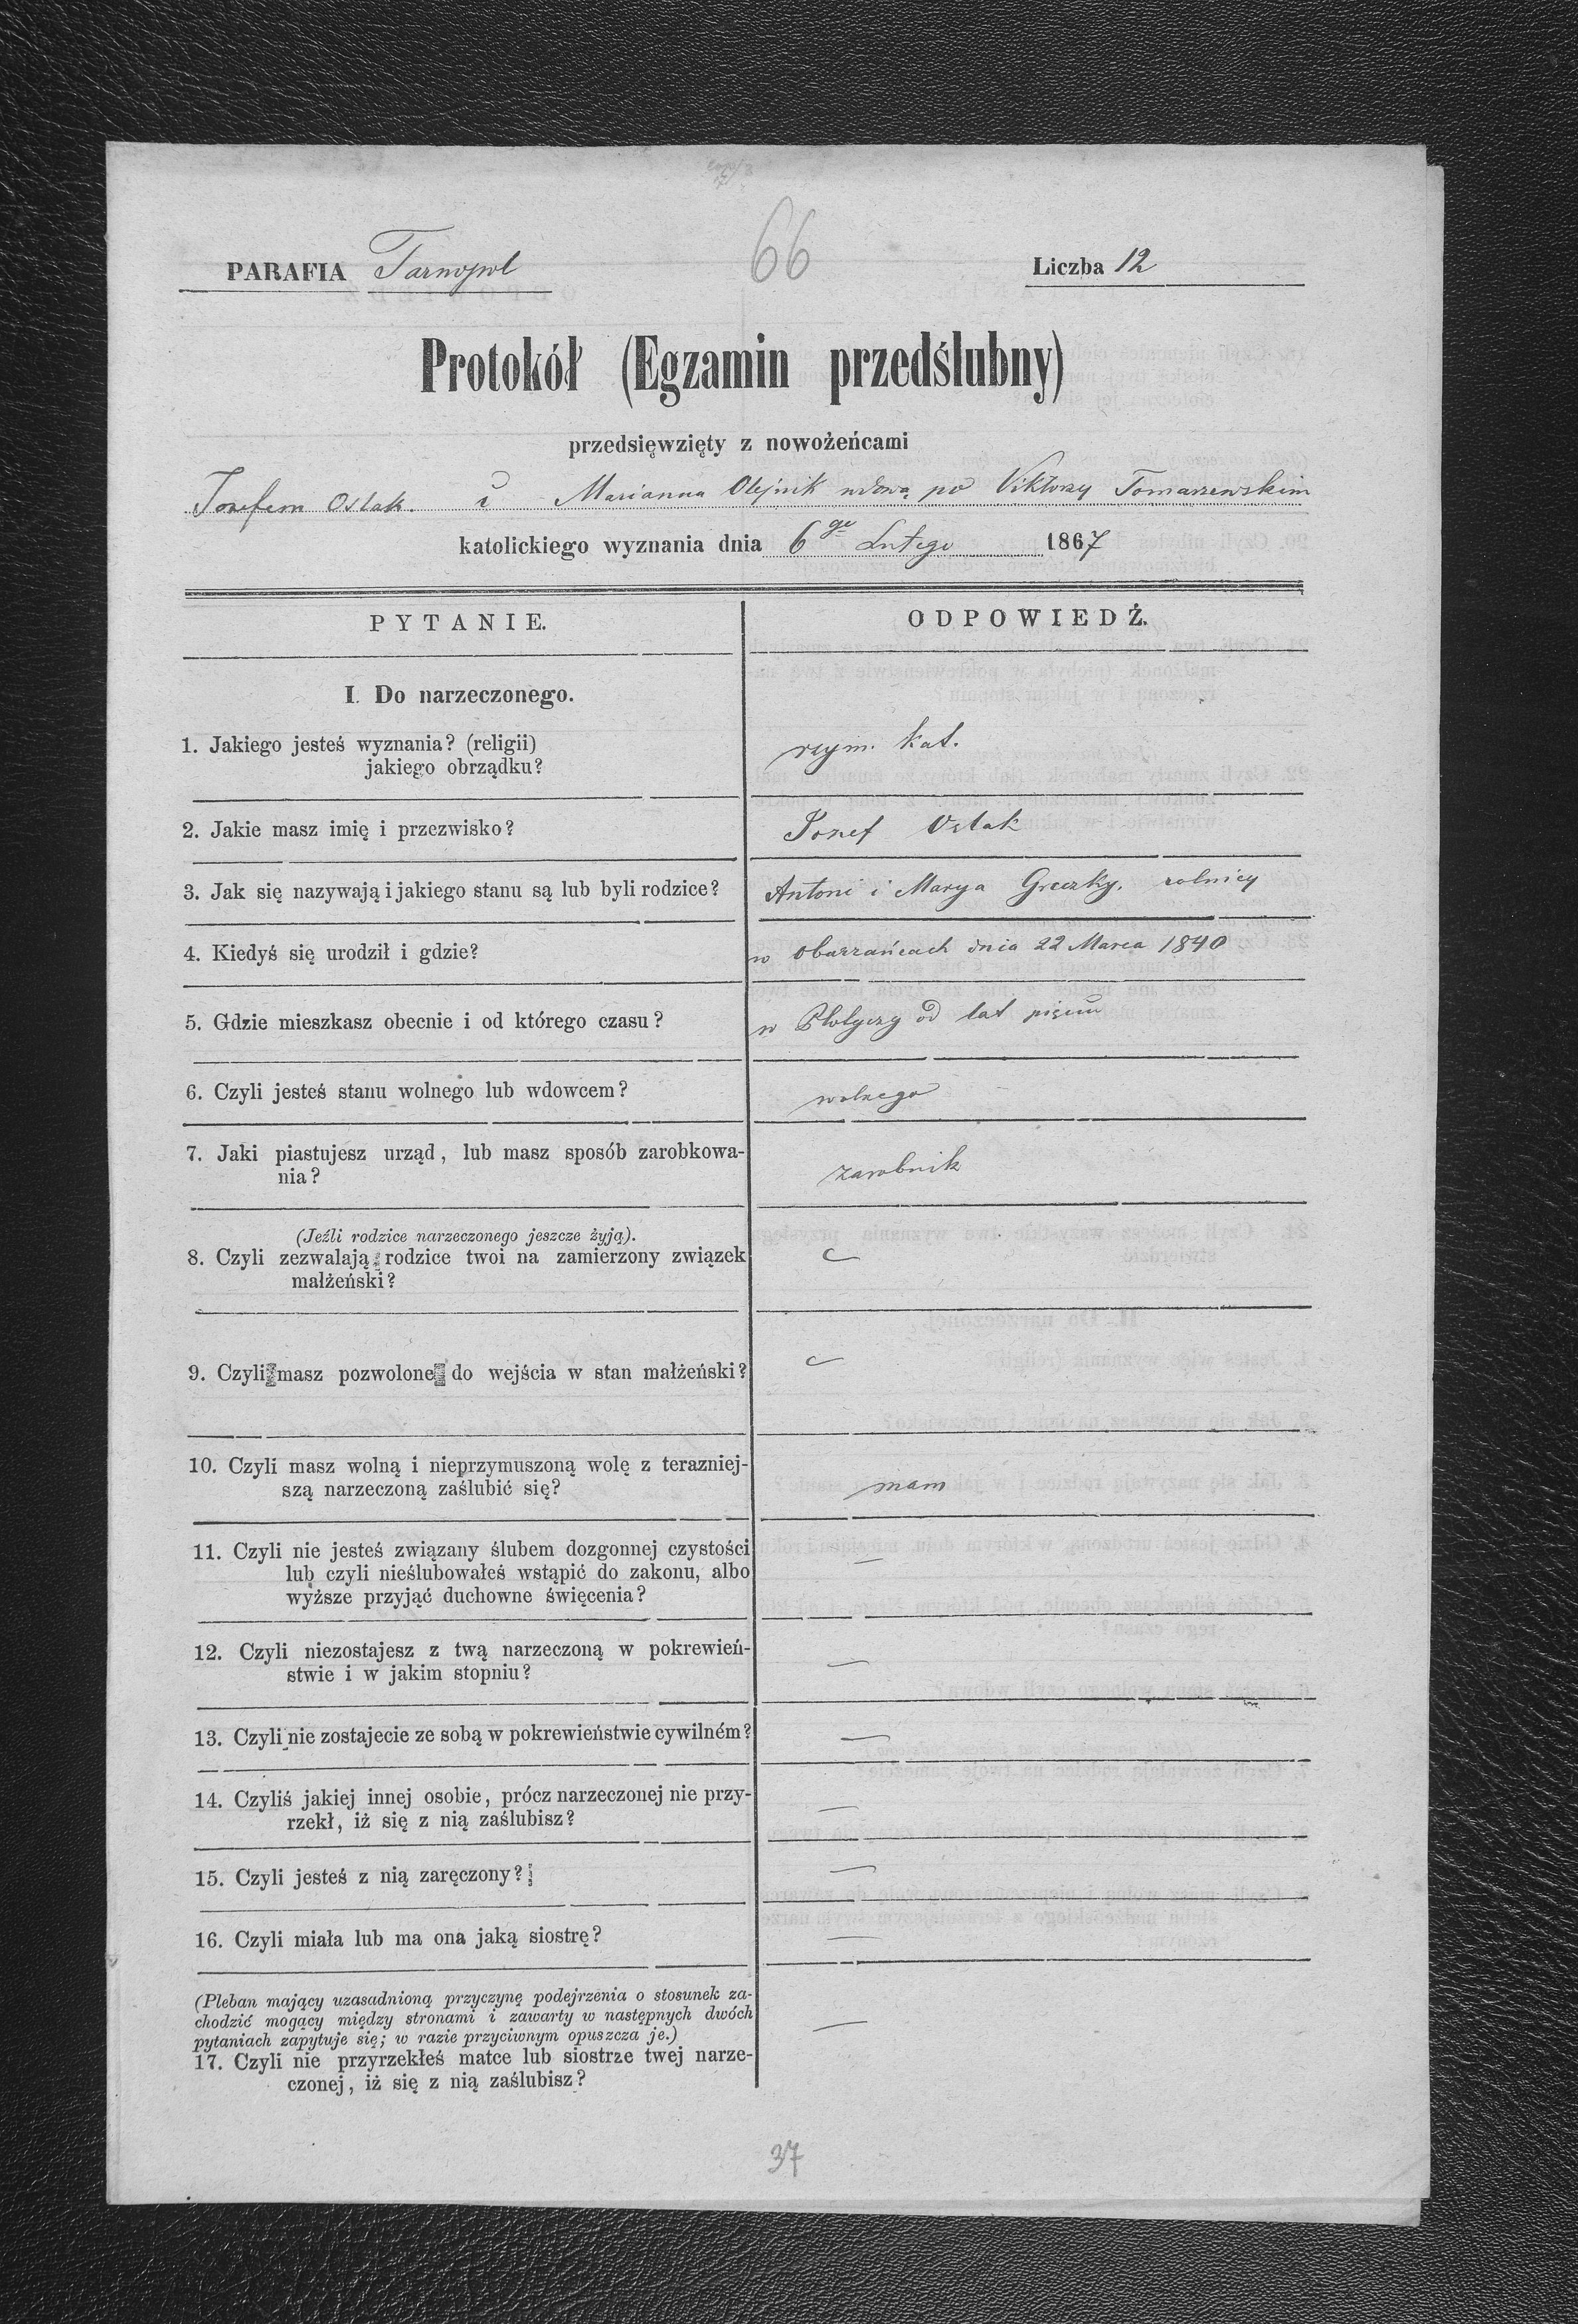 66
PARAFIA Tarnopol
Liczba 12
Protokół (Egzamin przedślubny)
przedsięwzięty z nowożeńcami
Józefem Oslak. i Marianna Olejnik wdową po Viktorzy Tomaszewskim
katolickiego wyznania dnia 6go Lutego 1867
PYTANIE.
ODPOWIEDŹ.
I. Do narzeczonego.
1. Jakiego jesteś wyznania? (religii)
jakiego obrządku?
rzym. kat.
2. Jakie masz imię i przezwisko?
Jozef Oslak
3. Jak się nazywają i jakiego stanu są lub byli rodzice?
Antoni i Marya rolnicy
4. Kiedyś się urodził i gdzie?
w obarzańcach dnia 22 Marca 1840
5. Gdzie mieszkasz obecnie i od którego czasu?
w Płotyczy od lat pięciu
6. Czyli jesteś stanu wolnego lub wdowcem?
wolnego
7. Jaki piastujesz urząd, lub masz sposób zarobkowa-
nia?
zarobnik
(Jeźli rodzice narzeczonego jeszcze żyją).
8. Czyli zezwalają rodzice twoi na zamierzony związek
małżeński?
9. Czyli masz pozwolone do wejścia w stan małżeński?
10. Czyli masz wolną i nieprzymuszoną wolę z terazniej-
szą narzeczoną zaślubić się?
mam
11. Czyli nie jesteś związany ślubem dozgonnej czystości
lub czyli nieślubowałeś wstąpić do zakonu, albo
wyższe przyjąć duchowne święcenia?
—
12. Czyli niezostajesz z twą narzeczoną w pokrewień-
stwie i w jakim stopniu?
—
13. Czyli nie zostajecie ze sobą w pokrewieństwie cywilném?
—
14. Czyliś jakiej innej osobie, prócz narzeczonej nie przy-
rzekł, iż się z nią zaślubisz?
—
15. Czyli jesteś z nią zaręczony?
—
16. Czyli miała lub ma ona jaką siostrę?
—
(Pleban mający uzasadnioną przyczynę podejrzenia o stosunek za-
chodzić mogący między stronami i zawarty w następnych dwóch
pytaniach zapytuje się; w razie przyciwnym opuszcza je.)
17. Czyli nie przyrzekłeś matce lub siostrze twej narze-
czonej, iż się z nią zaślubisz?
—
37